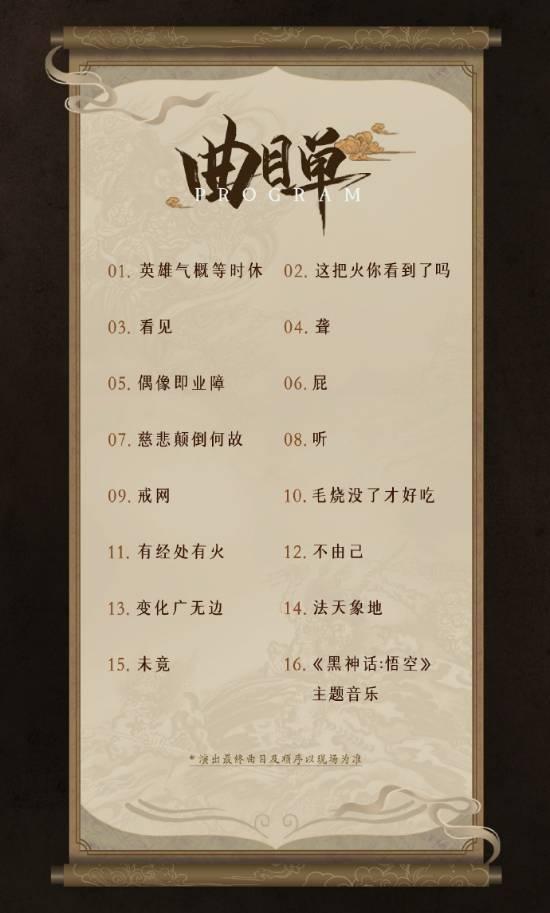 曲目单
PROGRAM
01. 英雄气概等时休 02. 这把火你看到了吗
03. 看见 04. 聋
05. 偶像即业障 06. 屁
07. 慈悲颠倒何故 08. 听
09. 戒网 10. 毛烧没了才好吃
11. 有经处有火 12. 不由己
13. 变化广无边 14. 法天象地
15. 未竟 16. 《黑神话:悟空》
主题音乐
* 演出最终曲目及顺序以现场为准